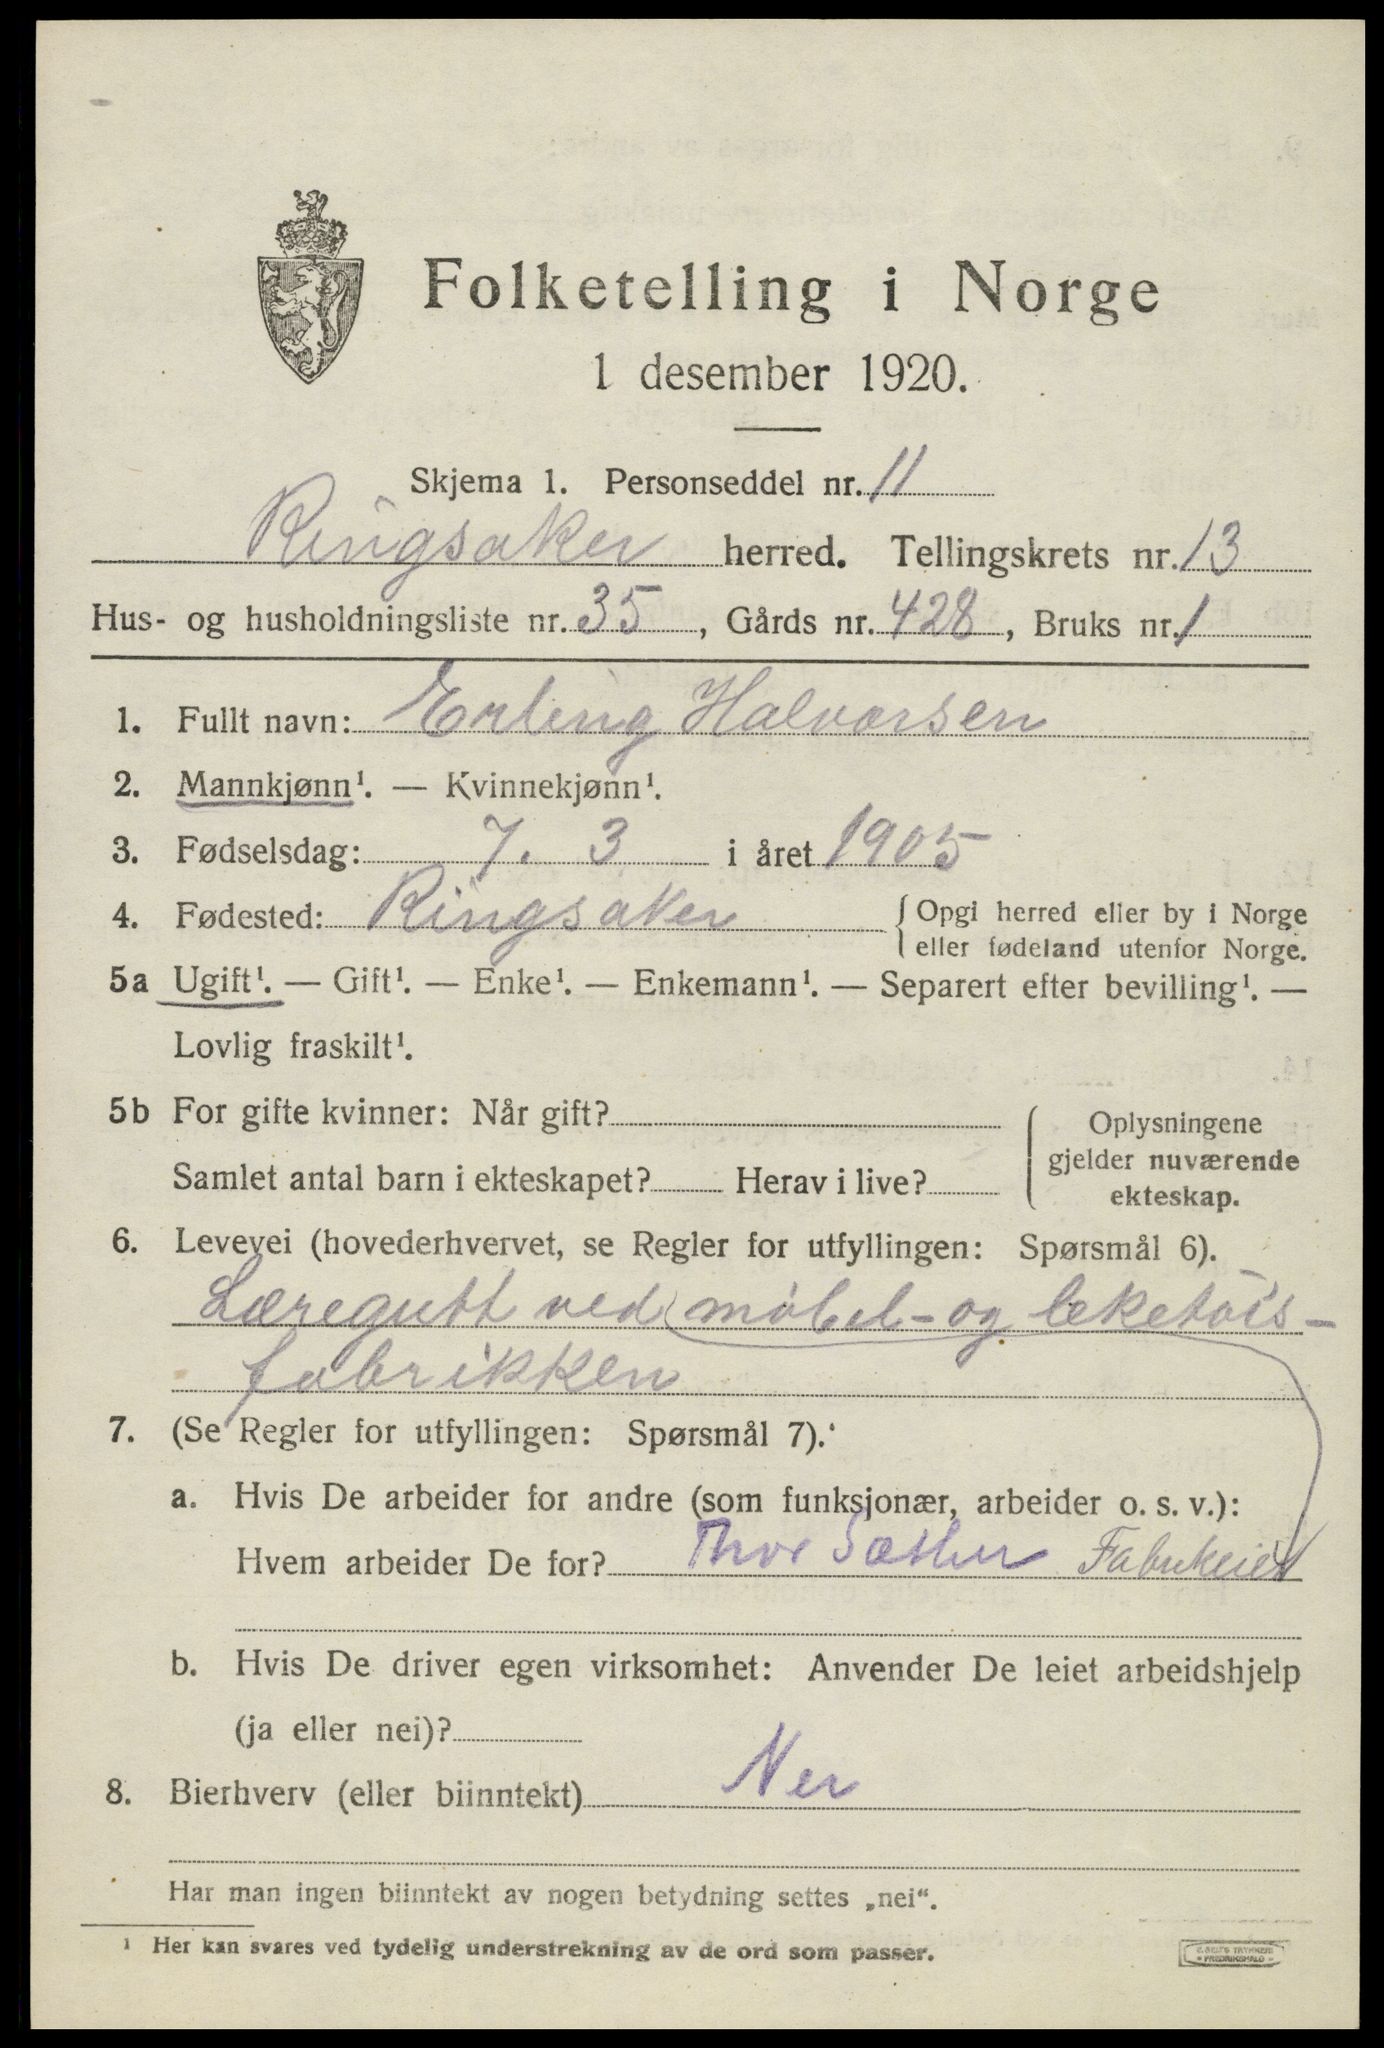 Folketelling i Norge
1 desember 1920.
Skjema 1. Personseddel nr. 11
Ringsaker herred. Tellingskrets nr. 13
Hus- og husholdningsliste nr. 35, Gårds nr. 428, Bruks nr. 1
1. Fullt navn: Erling Halvorsen
2. Mannkjønn¹. — Kvinnekjønn¹.
3. Fødselsdag: 7. 3 i året 1905
4. Fødested: Ringsaker { Opgi herred eller by i Norge
eller fødeland utenfor Norge.
5a Ugift¹. — Gift¹. — Enke¹. — Enkemann¹. — Separert efter bevilling¹. —
Lovlig fraskilt¹.
5b For gifte kvinner: Når gift? { Oplysningene
gjelder nuværende
Samlet antal barn i ekteskapet? Herav i live?
ekteskap.
6. Levevei (hovederhvervet, se Regler for utfyllingen: Spørsmål 6).
Læregutt ved møbel- og leketøis-
fabrikken
7. (Se Regler for utfyllingen: Spørsmål 7).
a. Hvis De arbeider for andre (som funksjonær, arbeider o. s. v.):
Hvem arbeider De for? Thor Sæther
b. Hvis De driver egen virksomhet: Anvender De leiet arbeidshjelp
(ja eller nei)?
8. Bierhverv (eller biinntekt) Nei
Har man ingen biinntekt av nogen betydning settes „nei“.
¹ Her kan svares ved tydelig understrekning av de ord som passer.